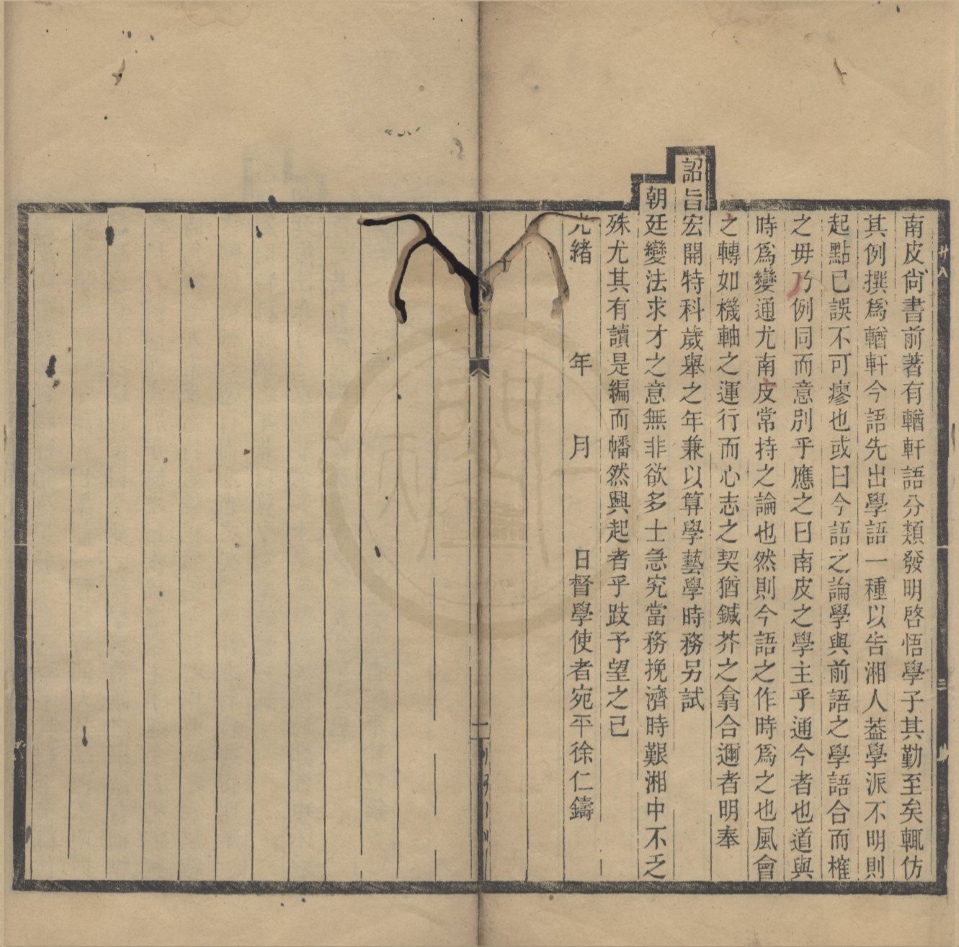 南皮尙書前著有輶軒語分類發明啓悟學子其勤至矣輒仿
其例撰爲輶軒今語先出學語一種以告湘人葢學派不明則
起點已誤不可瘳也或曰今語之論學與前語之學語合而榷
之毋乃例同而意別乎應之曰南皮之學主乎通今者也道與
時爲變通尤南皮常持之論也然則今語之作時爲之也風會
之轉如機軸之運行而心志之契猶鍼芥之翕合邇者明奉
詔旨宏開特科歲舉之年兼以算學藝學時務另試
朝廷變法求才之意無非欲多士急究當務挽濟時艱湘中不乏
殊尤其有讀是編而幡然興起者乎跂予望之已
光緒 年 月 日督學使者宛平徐仁鑄